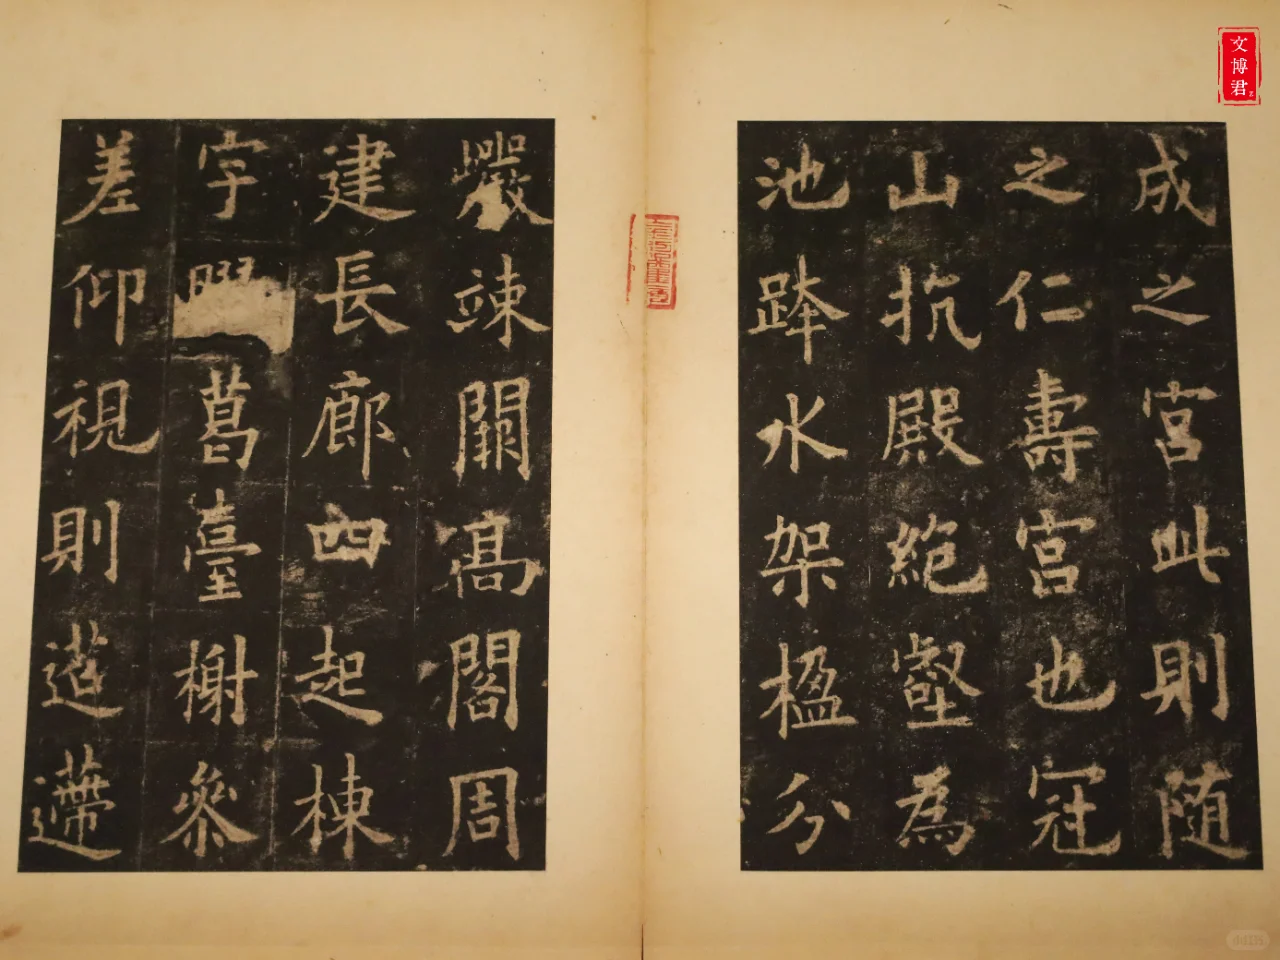 成之宮此則随
之仁壽宮也冠
山抗殿絶壑為
池跨水架楹分
巖竦闕高閣周
建長廊四起棟
字膠葛臺榭參
差仰視則迢遰
文博君